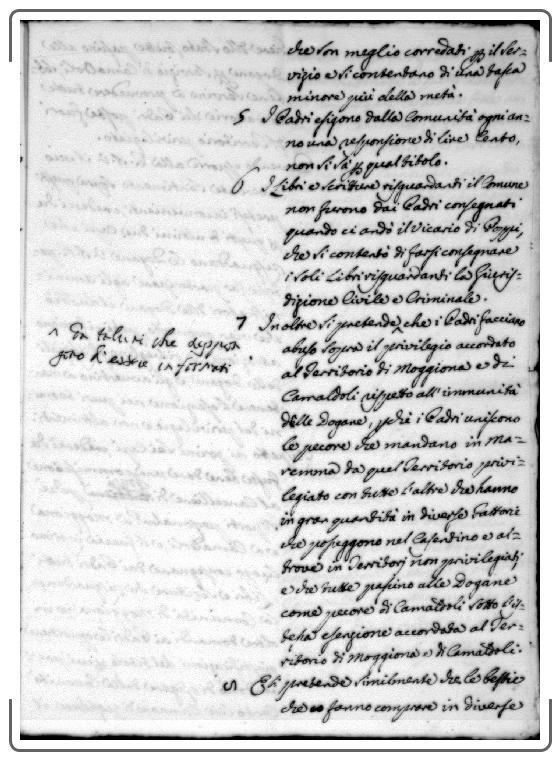 che son meglio corredati p il Ser-
vizio e si contentano di una tassa
minore più della metà.
5 I Padri esigono dalla Comunità ogni an-
no una responsione di Lire Cento,
non si sà p qual titolo.
6 I Libri e Scritture risguardanti il Comune
non furono dai Padri consegnati
quando ci andò il Vicario di Poppi,
che si contentò di farsi consegnare
i soli Libri risguardanti la Giuris-
dizione Civile e Criminale.
7 Inoltre si pretende ^ che i Padri facciano
^ da taluni che suppon
gono d'essere informati
abuso sopra il privilegio accordato
al Territorio di Moggiona e di
Camaldoli rispetto all'immunità
delle Dogane, pchè i Padri uniscono
le pecore che mandano in Ma-
remma da quel Territorio privi-
legiato con tutte l'altre che hanno
in gran quantità in diverse Fattorie
che posseggono nel Casentino e al-
trove in Territorj non privilegiati,
e che tutte passino alle Dogane
come pecore di Camaldoli sotto l'is-
tessa esenzione accordata al Ter-
ritorio di Moggiona e di Camaldoli.
8 Si pretende similmente che le bestie
che fanno comprare in diverse